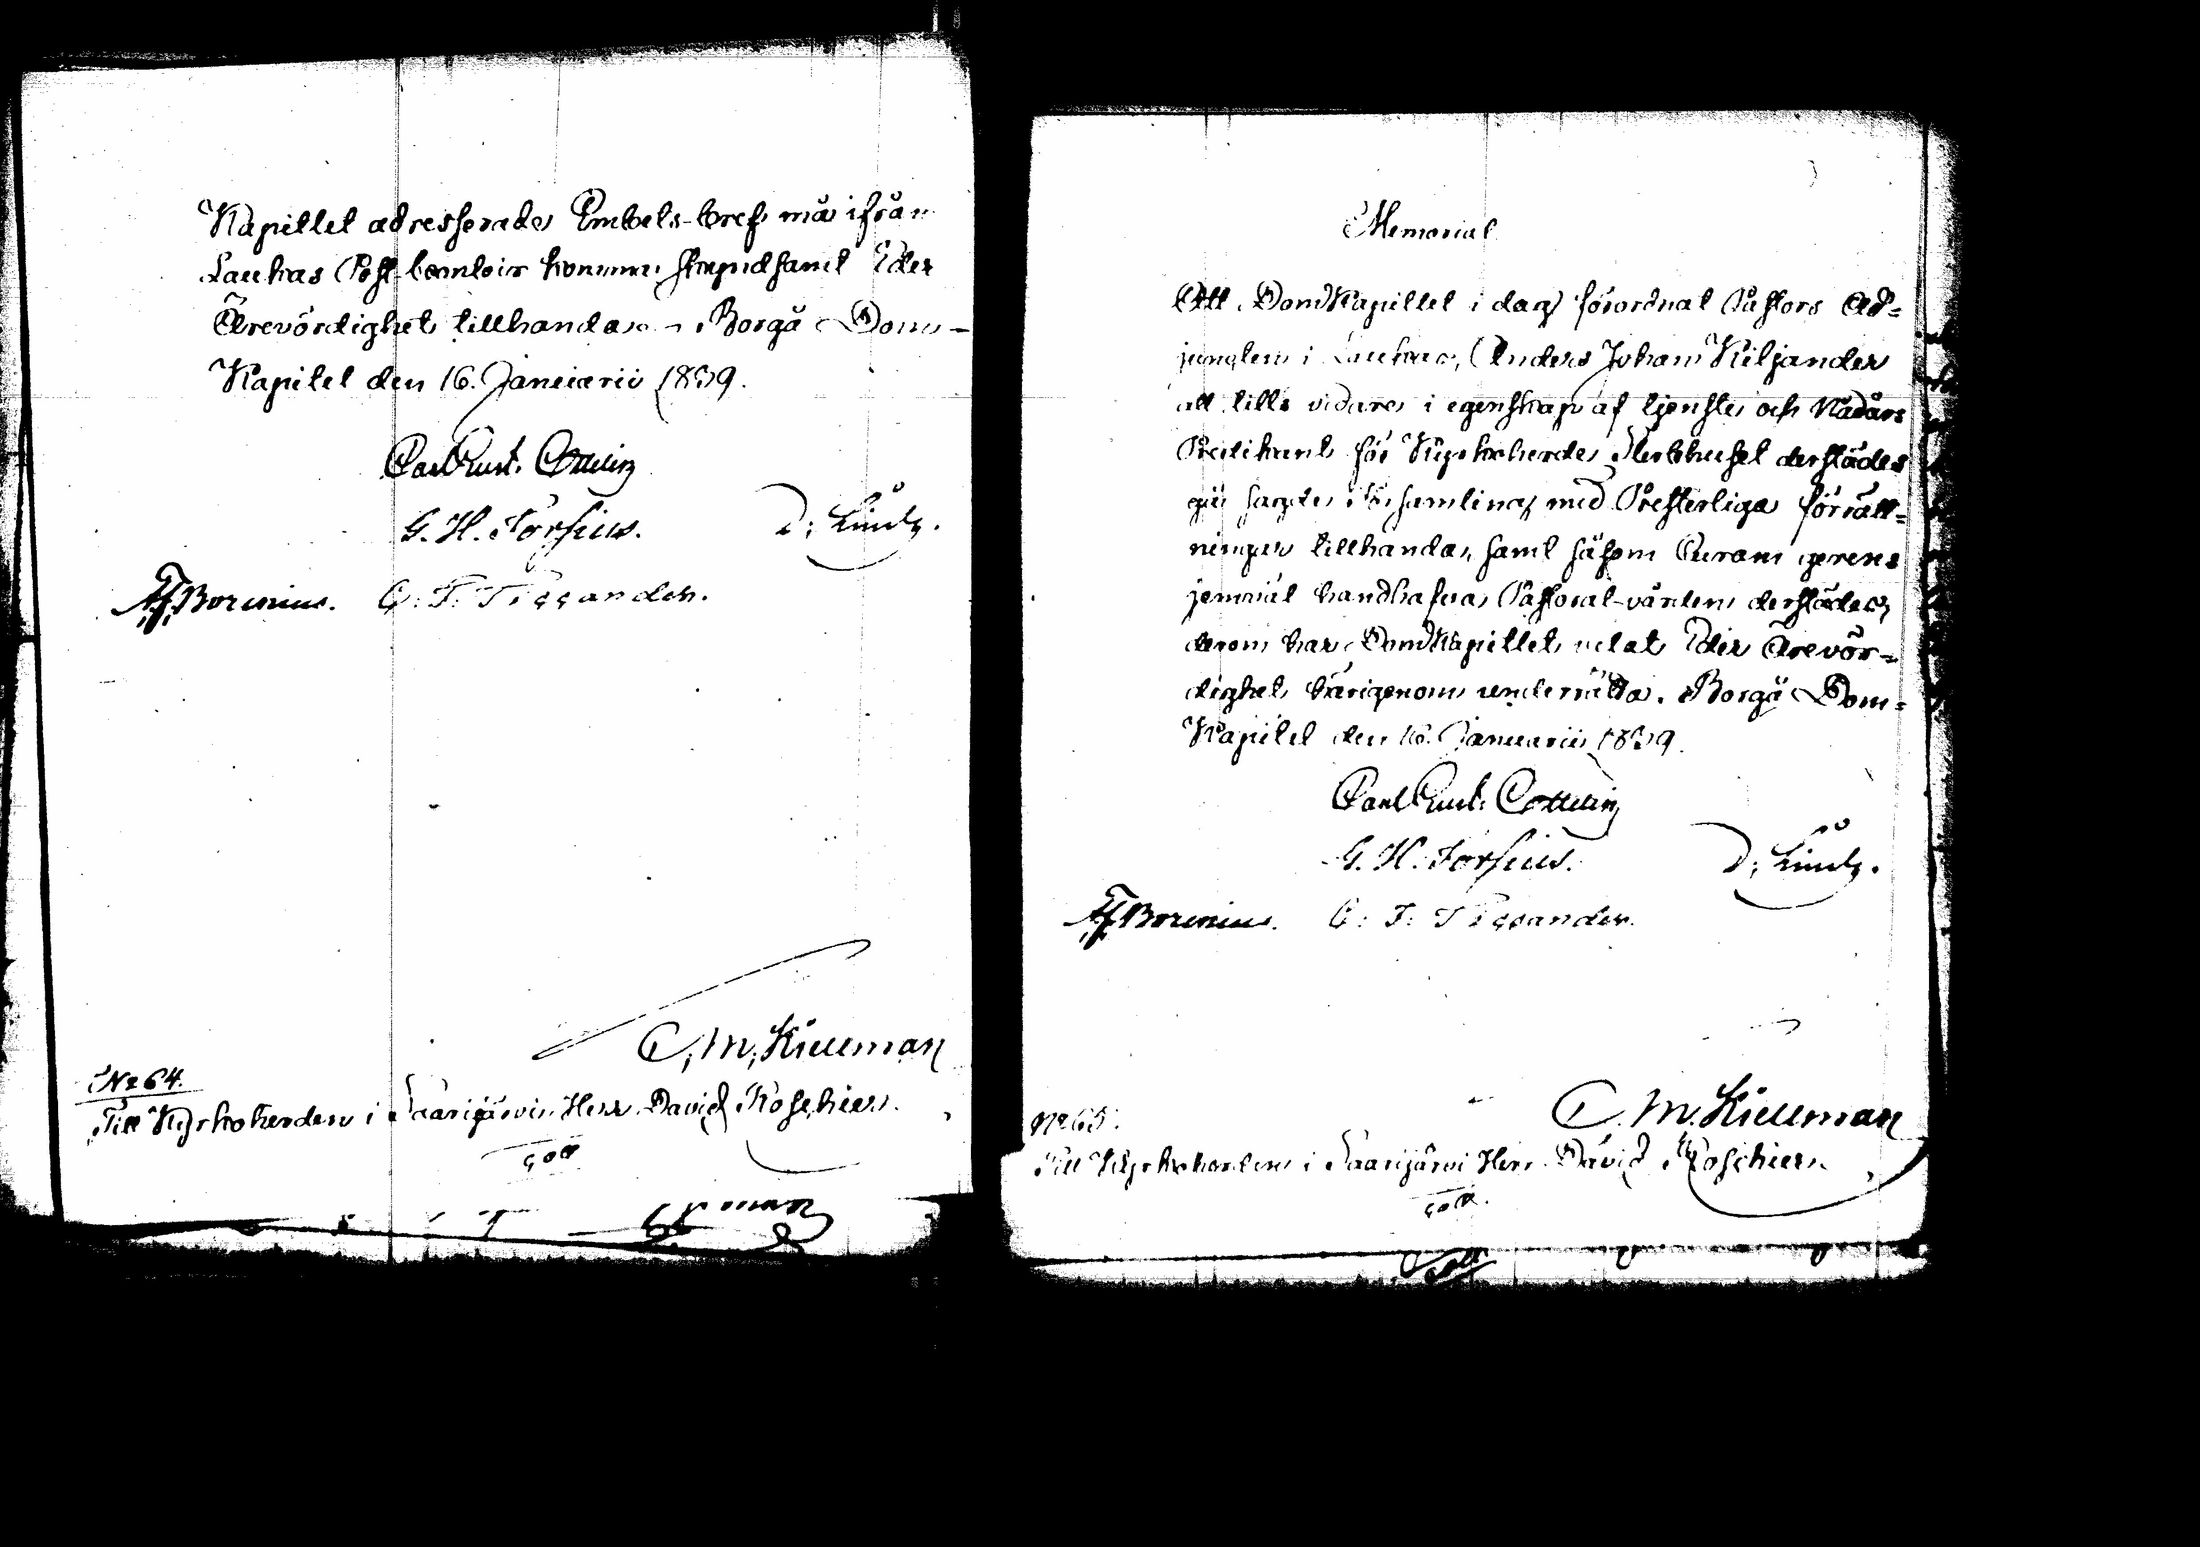 Kapitlet adresserade Embets-bref må ifrån
Laukas Post-comtoir komma skyndsamt Eder
Ärevördighet tillhanda. Borgå Dom-
Kapitel den 16. Januarii 1839.
Carl Gust. Ottelin
G. H. Forsius. D. Lindh.
Borenius. C. F.
C. M. Kiellman
No 64.
Till Kyrkoherden i Saarijärvi Herr David Roschier.
Memorial
Att DomKapitlet i dag förordnat Pastors Ad=
juncten i Laukas, Anders Johan Kiljander
att tills vidare i egenskap af tjenste och Nådårs
Predikant för Kyrkoherde Sterbhuset derstädes
gå sagde Församling med Presterliga förrätt=
ningar tillhanda, samt såsom Curam gerens
jemväl handhafva Pastoral-vården derstädes,
derom har DomKapitlet velat Eder Ärevör=
dighet härigenom underrätta. Borgå Dom=
Kapitel den 16. Januarii 1839.
Carl Gust. Ottelin
G. H. Forsius. D. Lindh.
Borenius. C. F.
C. M. Kiellman
No 65.
Till Kyrkoherden i Saarijärvi Herr David Roschier.